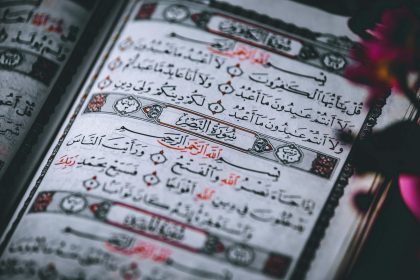 سُورَةُ الْكَافِرُونَ
بِسْمِ اللَّهِ الرَّحْمَٰنِ الرَّحِيمِ
قُلْ يَا أَيُّهَا الْكَافِرُونَ لَا أَعْبُدُ مَا تَعْبُدُونَ
وَلَا أَنْتُمْ عَابِدُونَ مَا أَعْبُدُ وَلَا أَنَا عَابِدٌ مَا عَبَدْتُمْ
وَلَا أَنْتُمْ عَابِدُونَ مَا أَعْبُدُ لَكُمْ دِينُكُمْ وَلِيَ دِينِ
سُورَةُ النَّصْرِ
بِسْمِ اللَّهِ الرَّحْمَٰنِ الرَّحِيمِ
إِذَا جَاءَ نَصْرُ اللَّهِ وَالْفَتْحُ وَرَأَيْتَ النَّاسَ
يَدْخُلُونَ فِي دِينِ اللَّهِ أَفْوَاجًا فَسَبِّحْ بِحَمْدِ رَبِّكَ
وَاسْتَغْفِرْهُ إِنَّهُ كَانَ تَوَّابًا